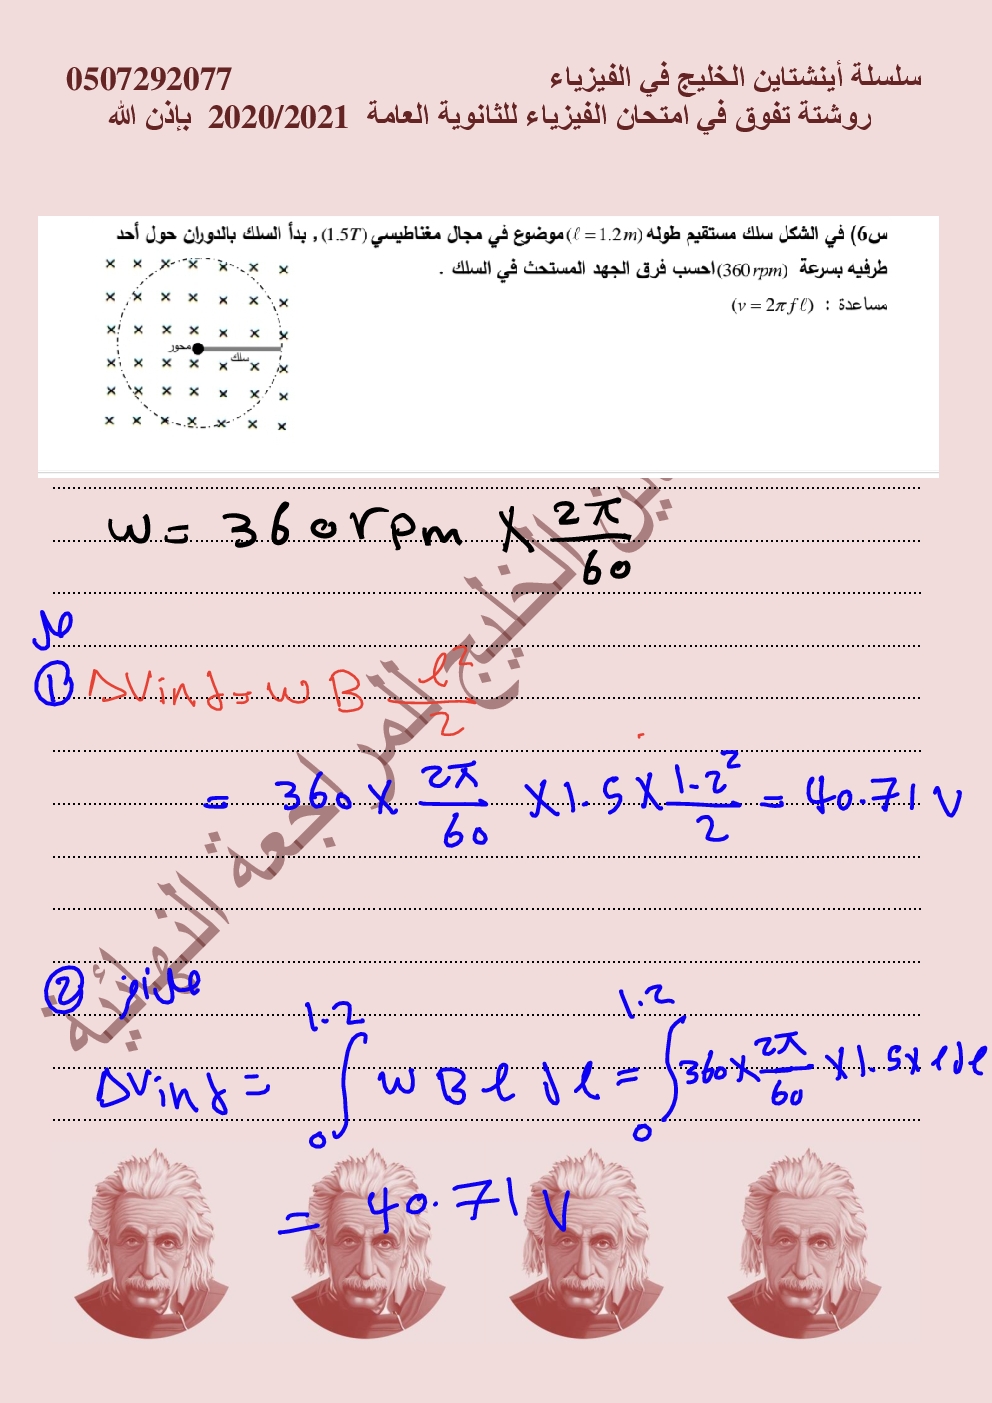 سلسلة أينشتاين الخليج في الفيزياء 0507292077
روشتة تفوق في امتحان الفيزياء للثانوية العامة 2020/2021 بإذن الله
س6) في الشكل سلك مستقيم طوله (ℓ = 1.2 m) موضوع في مجال مغناطيسي (1.5T) , بدأ السلك بالدوران حول أحد
طرفيه بسرعة (360 rpm) احسب فرق الجهد المستحث في السلك .
مساعدة : (v = 2π f ℓ)
محور
سلك
w = 360 rpm × 2π/60
حل
① ΔVind = w B ℓ²/2
= 360 × 2π/60 × 1.5 × 1.2²/2 = 40.71 V
②
ΔVind = ∫₀^1.2 w B ℓ dℓ = ∫₀^1.2 360 × 2π/60 × 1.5 × ℓ dℓ
= 40.71 V
الخليج للمراجعة النهائية